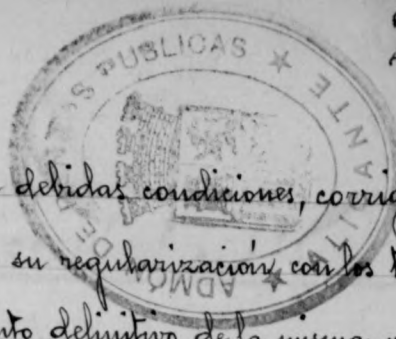 PUBLICAS ★
ALICANTE ★
ADMÓN DE
debidas condiciones, corrig
su regularización con los
nto definitivo de la misma